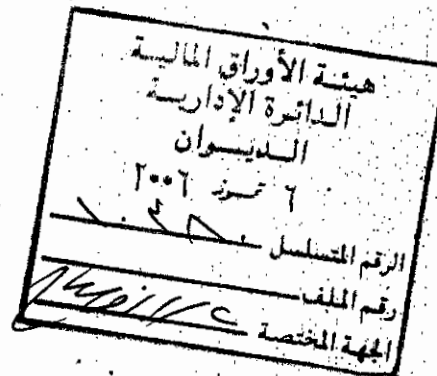 هيئة الأوراق المالية
الدائرة الإدارية
الديوان
٦ تموز ٢٠٠٦
الرقم المتسلسل
رقم الملف
الجهة المختصة